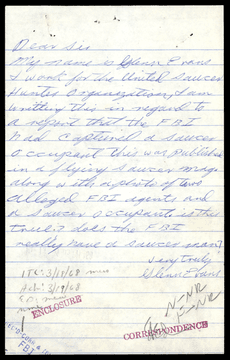 Dear Sir
My name is Glenn Evans
I work for the United Saucer
Hunters Organization, I am
writting this in regard to
a report that the FBI
had captured a saucer
occupant this was published
in a flying saucer mag.
along with a photo of two
alleged FBI agents and
a saucer occupant is this
true? does the FBI
really have a saucer man?
very truly
Glenn Evans
3/18/68
ENCLOSURE
N-NR
F-NR
CORRESPONDENCE
FBI